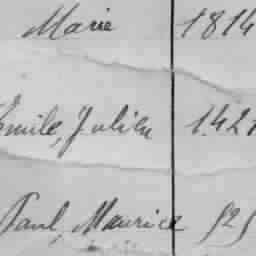 Marie 1814
Emile, Julien 1421
Paul, Maurice 525